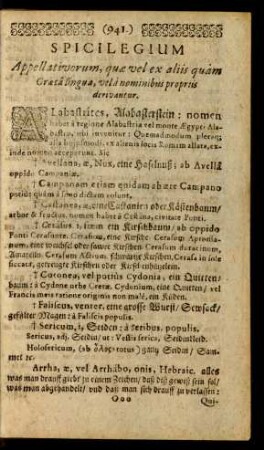 (941.)
SPICILEGIUM
Appellativorum, quæ vel ex aliis quàm
Græcâ linguâ, vel à nominibus propriis
derivantur.
ALabastrites, Alabasterstein: nomen
habet à regione Alabastria vel monte Ægypt. Ala-
bastro, ubi invenitur: Quemadmodum pleraq;
alia hujusmodi, ex alienis locis Romam allata, ex-
inde nomina acceperunt. Sic
† Avellana, æ, Nux, eine Haselnuß; ab Avellâ
oppido Campaniæ.
† Campanam etiam quidam ab ære Campano
† Castanea, æ, eine oder Kästenbaum/
arbor & fructus. nomen habet à civitate Ponti.
† Cerasus, i, ein Kirschbaum/ ab oppido
Ponti Cerasunte. Cerasum, eine Kirsche. Cerasum Apronia-
num, eine oder Cerasum duracinum,
Cerasum Actium, schwartze Kirschen. Cerasa in sole
siccata, getreugte Kirschen oder
† Cotonea, vel potiùs Cydonia, ein Quitten-
baum: à Cydone urbe Cretæ. Cydonium, eine Quitten/ vel
Francis mera ratione originis non malè, ein Küden.
† Faliscus, venter, eine grosse Wurst/
gefülter Magen: à Faliscis populis.
† Sericum, i, Seiden: à Seribus, populis.
Sericus, adj. Seiden/ ut: Vestis serica, Seidenkleid.
Holosericum, (ab ὅλος, totus) gantz Seiden/ Sam-
met ꝛc.
Arrha, æ, vel Arrhabo, onis, Hebraic. alles
was man drauff giebt zu einem Zeichen/ daß diß gewiß sein sol/
was man abgehandelt/ und daß man sich drauff zu verlassen:
Ooo Qui-